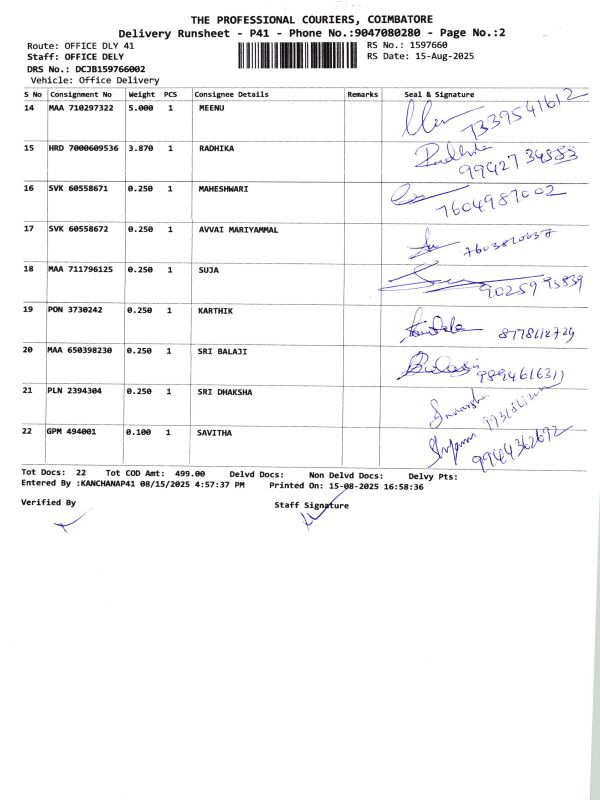 THE PROFESSIONAL COURIERS, COIMBATORE
Delivery Runsheet - P41 - Phone No.:9047080280 - Page No.:2
Route: OFFICE DLY 41 RS No.: 1597660
Staff: OFFICE DELY RS Date: 15-Aug-2025
DRS No.: DCJB159766002
Vehicle: Office Delivery
S No Consignment No Weight PCS Consignee Details Remarks Seal & Signature
14 MAA 710297322 5.000 1 MEENU 7339541612
15 HRD 7000609536 3.870 1 RADHIKA Radhika
9942734883
16 SVK 60558671 0.250 1 MAHESHWARI
7604987002
17 SVK 60558672 0.250 1 AVVAI MARIYAMMAL
18 MAA 711796125 0.250 1 SUJA
9025995839
19 PON 3730242 0.250 1 KARTHIK
8778112729
20 MAA 650398230 0.250 1 SRI BALAJI Balaji
9894616311
21 PLN 2394304 0.250 1 SRI DHAKSHA
22 GPM 494001 0.100 1 SAVITHA
9944362692
Tot Docs: 22 Tot COD Amt: 499.00 Delvd Docs: Non Delvd Docs: Delvy Pts:
Entered By :KANCHANAP41 08/15/2025 4:57:37 PM Printed On: 15-08-2025 16:58:36
Verified By Staff Signature